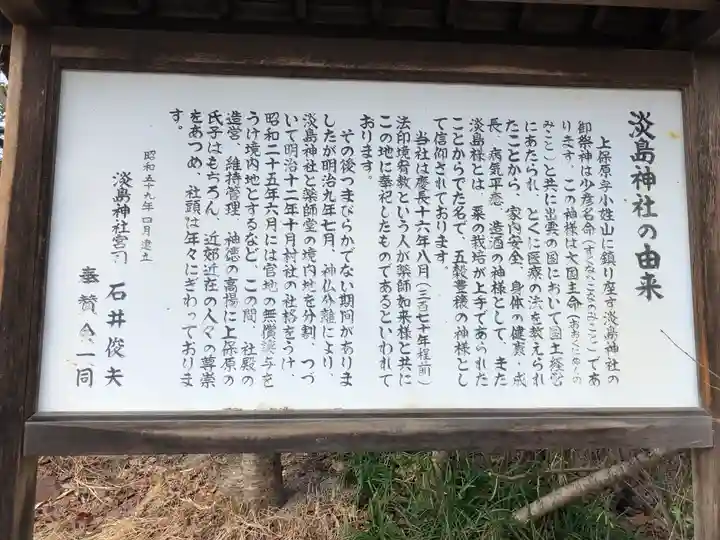 淡島神社の由来
上保原字小姓山に鎮り座す淡島神社の
御祭神は少彦名命(すくなひこなのみこと)であ
ります。この神様は大国主命(おおくにぬしの
みこと)と共に出雲の国において国土経営
にあたられ、とくに医療の法を教えられ
たことから、家内安全、身体の健康、成
長、病気平癒、造酒の神様として、また
淡島様とは、粟の栽培が上手であられた
ことからでた名で、五穀豊穣の神様とし
て信仰されております。
当社は慶長十六年八月(三百七十年程前)
法印境宥教という人が薬師如来様と共に
この地に奉祀したものであるといわれて
おります。
その後つまびらかでない期間がありま
したが明治九年七月、神仏分離により、
淡島神社と薬師堂の境内地を分割、つづ
いて明治十二年十月村社の社格をうけ、
昭和二十五年六月には官地の無償譲与を
うけ境内地とするなど、この間、社殿の
造営、維持管理、神徳の高揚に上保原の
氏子はもちろん、近郊近在の人々の尊崇
をあつめ、社頭は年々にぎわっておりま
す。
昭和五十九年四月建立
淡島神社宮司 石井俊夫
奉賛会一同